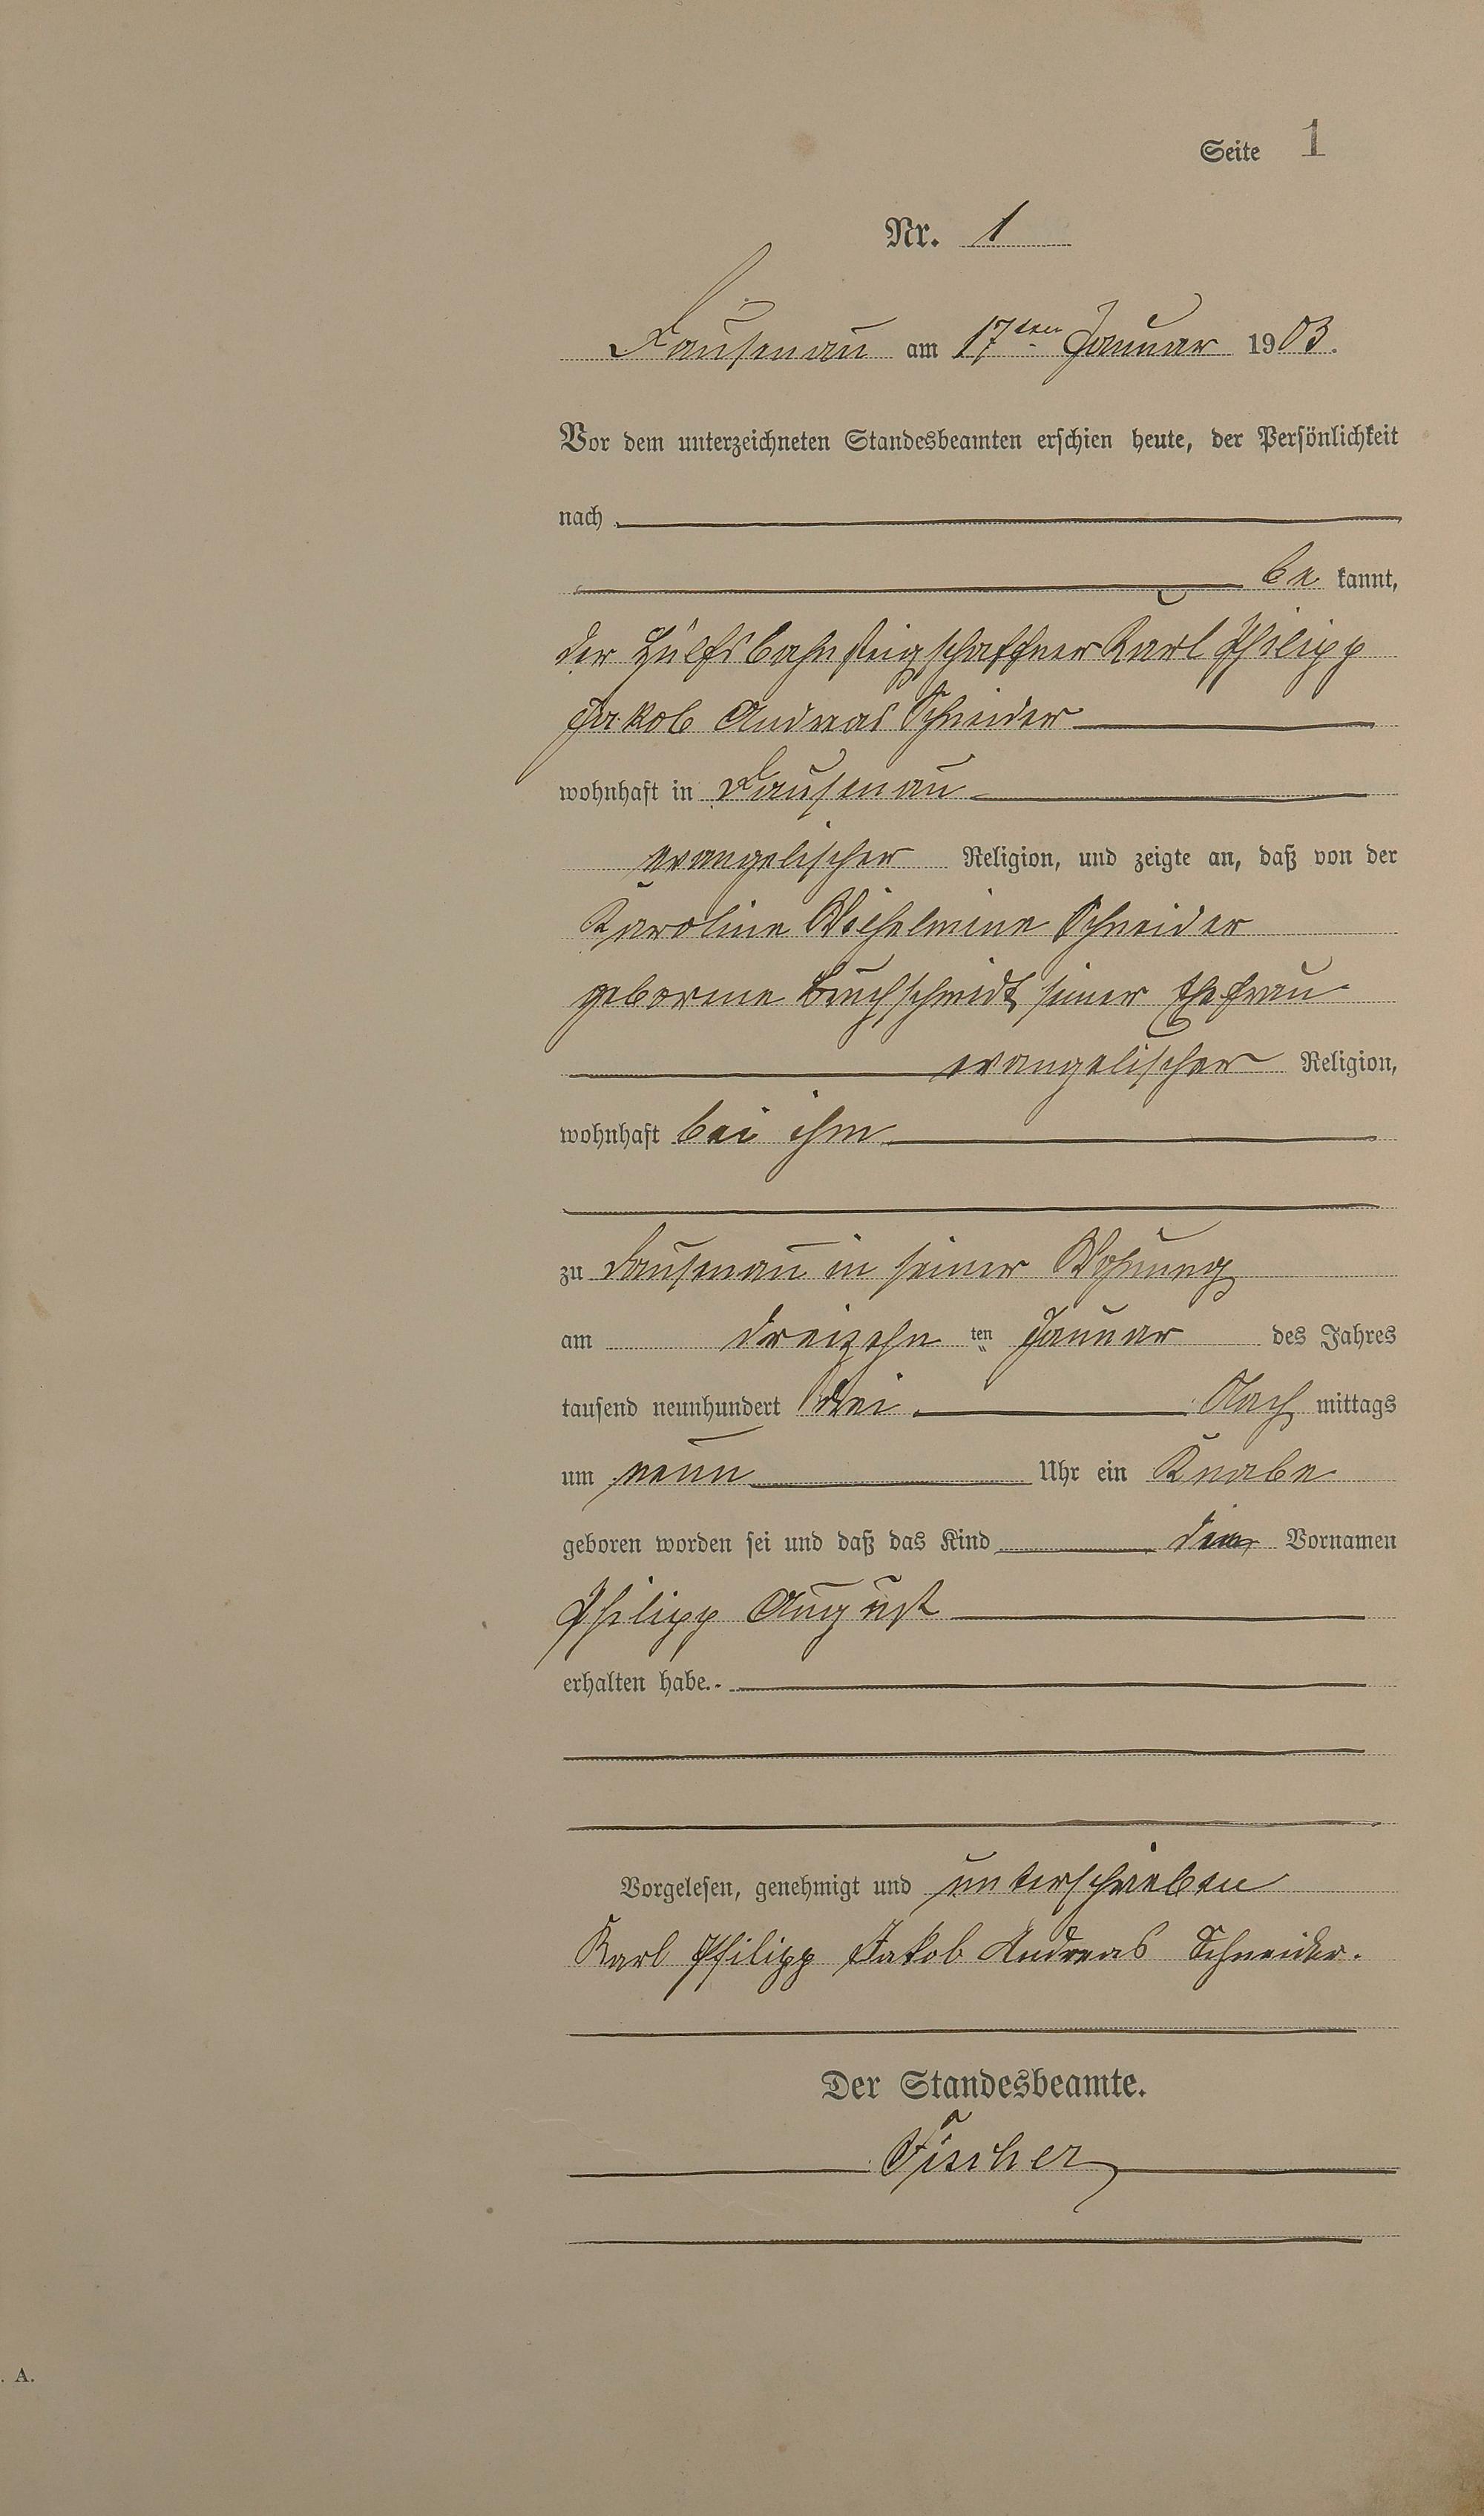 Seite 1
Nr. 1
Dausenau am 17ten Januar 1903.
Vor dem unterzeichneten Standesbeamten erschien heute, der Persönlichkeit
nach
be kannt,
der Hülfsbahnsteigschaffner Karl Philipp
Jakob Andreas Schneider
wohnhaft in Dausenau
evangelischer Religion, und zeigte an, daß von der
Karoline Wilhelmine Schneider
geborene Buchschmidt, seiner Ehefrau
evangelischer Religion,
wohnhaft bei ihm
zu Dausenau in seiner Wohnung
am dreizehn ten Januar des Jahres
tausend neunhundert drei Nach mittags
um neun Uhr ein Knabe
geboren worden sei und daß das Kind die Vornamen
Philipp August
erhalten habe.
Vorgelesen, genehmigt und unterschrieben
Karl Philipp Jakob Andreas Schneider.
Der Standesbeamte.
Fischer
. A.